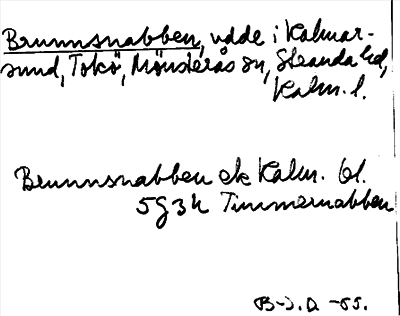 Brunnsnabben, udde i Kalmar-
sund, Tokö, Mönsterås sn, Stranda hd,
Kalm. l.
Brunnsnabben ek Kalm. bl.
5g3h Timmernabben
B-J.D. -55.